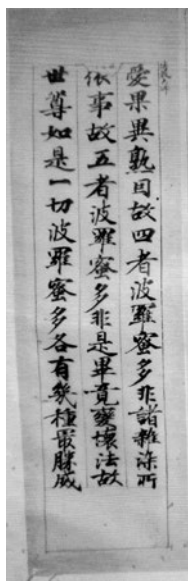 愛果異熟因故四者波羅蜜多非諸雜染所
依事故五者波羅蜜多非是畢竟變壞法故
世尊如是一切波羅蜜多各有幾種最勝威